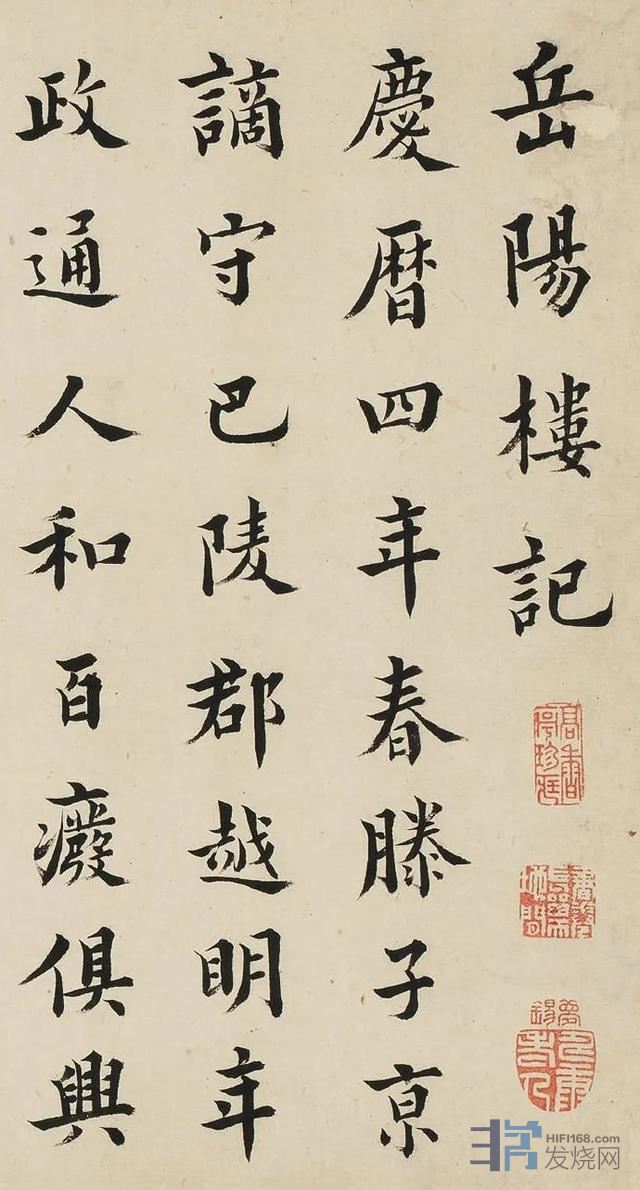 岳陽樓記
慶曆四年春滕子京
謫守巴陵郡越明年
政通人和百癈俱興
HIFI168.com
发烧网